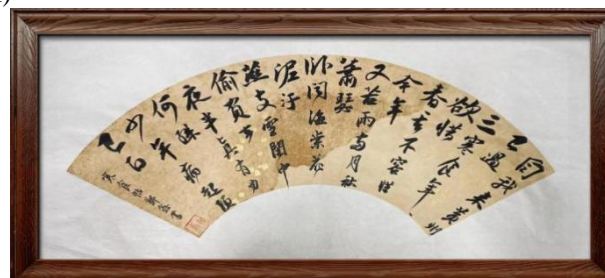 自我来黄州
已過
三寒食年
欲惜
春去不容惜
今年
又苦雨兩月秋
蕭瑟
卧聞海棠花
泥汙
燕支雪闇中
偷負
夜半真有力
何
年病起頭
已白